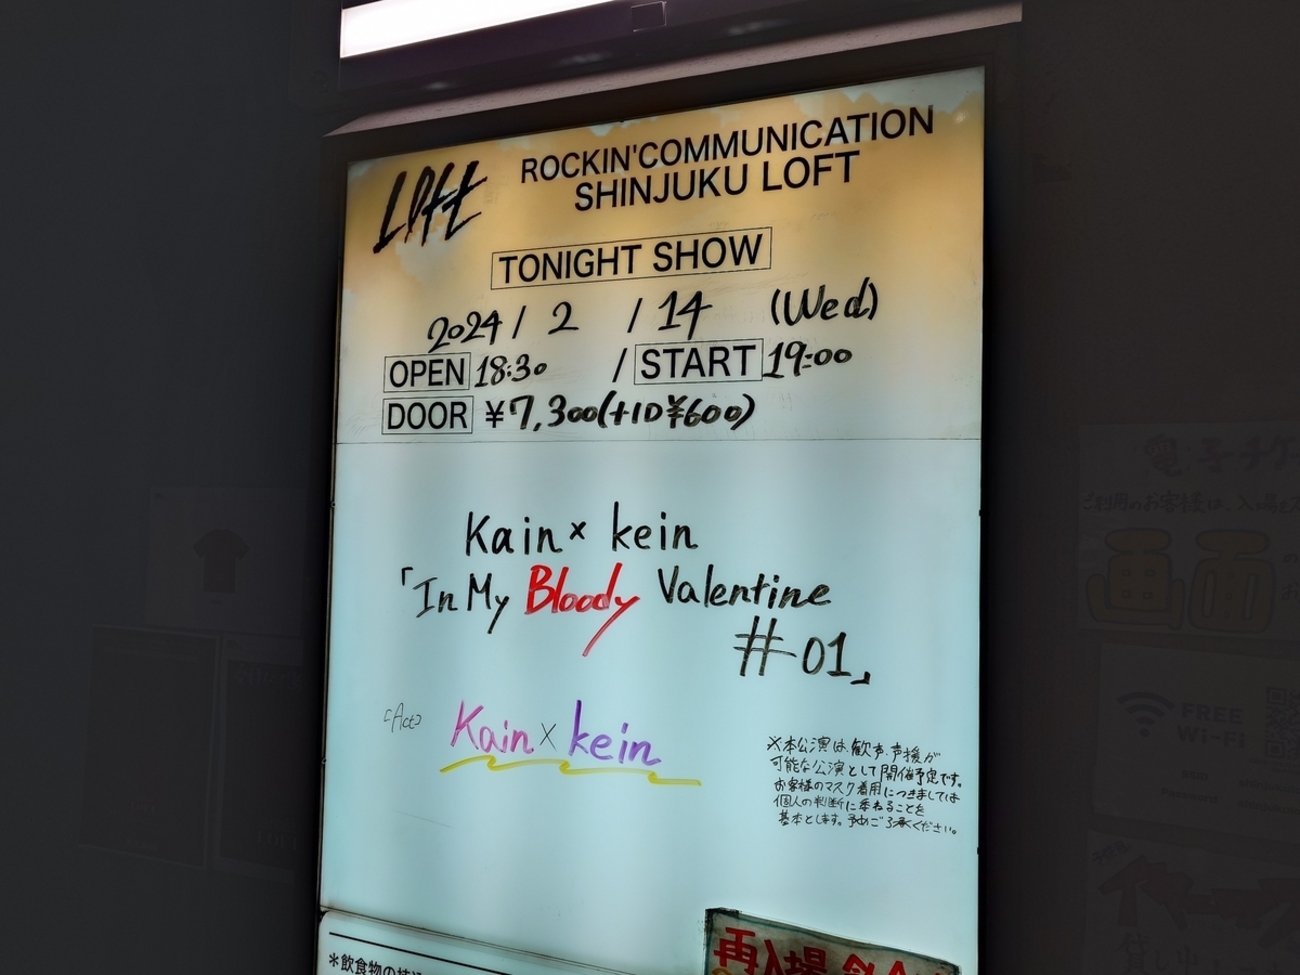 Loft
ROCKIN'COMMUNICATION
SHINJUKU LOFT
TONIGHT SHOW
2024 / 2 / 14 (Wed)
OPEN 18:30 / START 19:00
DOOR ¥7,300(+1D¥600)
Kain × kein
「In My Bloody Valentine
#01」
[Act] Kain × kein
※本公演は、歓声・声援が
可能な公演として開催予定です。
お客様のマスク着用につきましては
個人の判断に委ねることを
基本とします。予めご了承ください。
電子チケ
ご利用のお客様は、入場
画面
FREE
Wi-Fi
Password
再入場
*飲食物の持